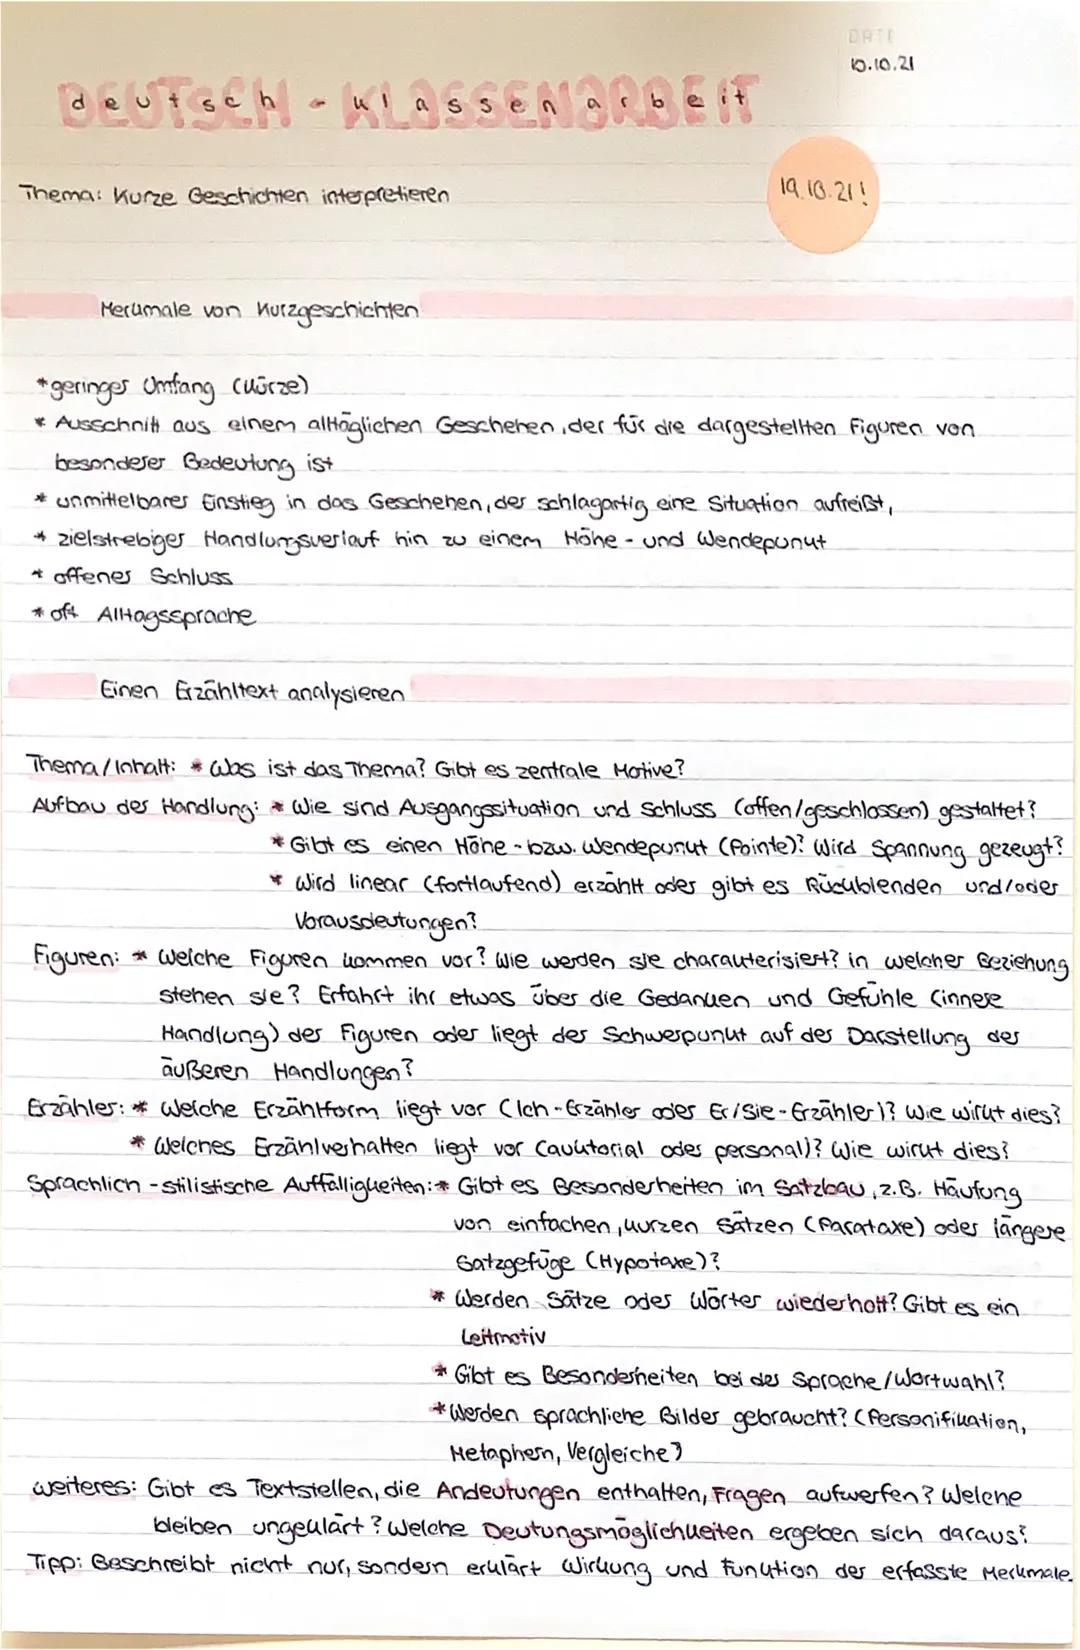 DATE
10.10.21
DEUTSCH - KLASSENARBEIT
deutsch - klassenarbeit
19.10.21!
Thema: Kurze Geschichten interpretieren
Merkmale von Kurzgeschichten
*geringer Umfang (Kürze)
* Ausschnitt aus einem alltäglichen Geschehen, der für die dargestellten Figuren von
besonderer Bedeutung ist
* unmittelbarer Einstieg in das Geschehen, der schlagartig eine Situation aufreißt,
* zielstrebiger Handlungsverlauf hin zu einem Höhe - und Wendepunkt
* offener Schluss
* oft Alltagssprache
Einen Erzähltext analysieren
Thema/Inhalt: * Was ist das Thema? Gibt es zentrale Motive?
Aufbau der Handlung: * Wie sind Ausgangssituation und Schluss (offen/geschlossen) gestaltet?
* Gibt es einen Höhe - bzw. Wendepunkt (Pointe)? Wird Spannung gezeugt?
* Wird linear (fortlaufend) erzählt oder gibt es Rückblenden und/oder
Vorausdeutungen?
Figuren: * Welche Figuren kommen vor? Wie werden sie charakterisiert? in welcher Beziehung
stehen sie? Erfahrt ihr etwas über die Gedanken und Gefühle (innere
Handlung) der Figuren oder liegt der Schwerpunkt auf der Darstellung der
äußeren Handlungen?
Erzähler: * Welche Erzählform liegt vor (Ich-Erzähler oder Er/Sie-Erzähler)? Wie wirkt dies?
* Welches Erzählverhalten liegt vor (auktorial oder personal)? Wie wirkt dies?
Sprachlich - stilistische Auffälligkeiten: * Gibt es Besonderheiten im Satzbau, z.B. Häufung
von einfachen, kurzen Sätzen (Parataxe) oder längere
Satzgefüge (Hypotaxe)?
* Werden Sätze oder Wörter wiederholt? Gibt es ein
Leitmotiv
* Gibt es Besonderheiten bei der Sprache/Wortwahl?
*Werden sprachliche Bilder gebraucht? (Personifikation,
Metaphern, Vergleiche)
weiteres: Gibt es Textstellen, die Andeutungen enthalten, Fragen aufwerfen? Welche
bleiben ungeklärt? Welche Deutungsmöglichkeiten ergeben sich daraus?
Tipp: Beschreibt nicht nur, sondern erklärt Wirkung und Funktion der erfasste Merkmale.